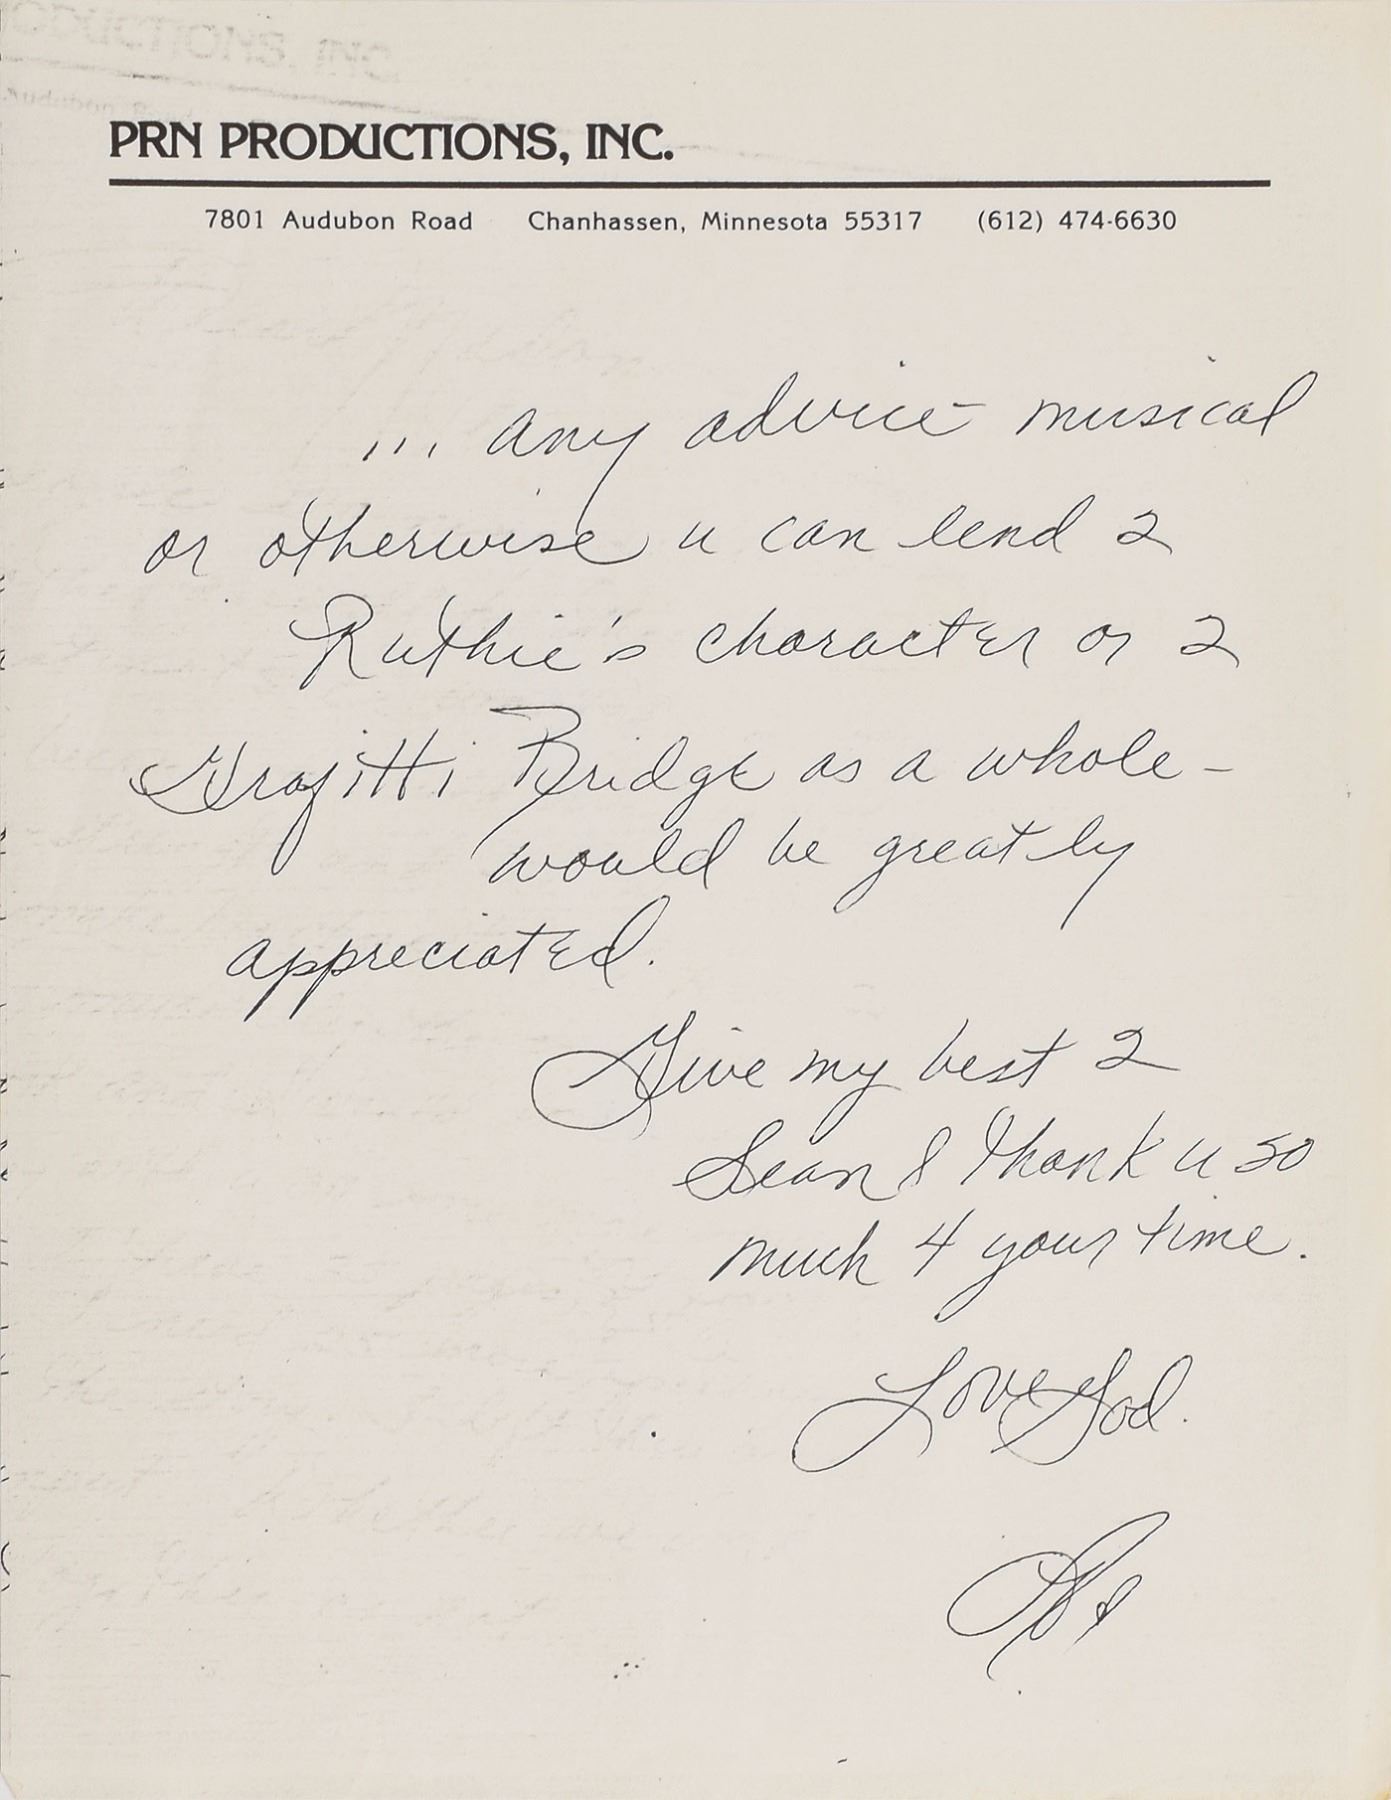 PRN PRODUCTIONS, INC.
7801 Audubon Road Chanhassen, Minnesota 55317 (612) 474-6630
... any advice - musical
or otherwise u can lend 2
Ruthie's character or 2
Grafitti Bridge as a whole -
would be greatly
appreciated.
Give my best 2
Sean & thank u so
much 4 your time.
Love God.